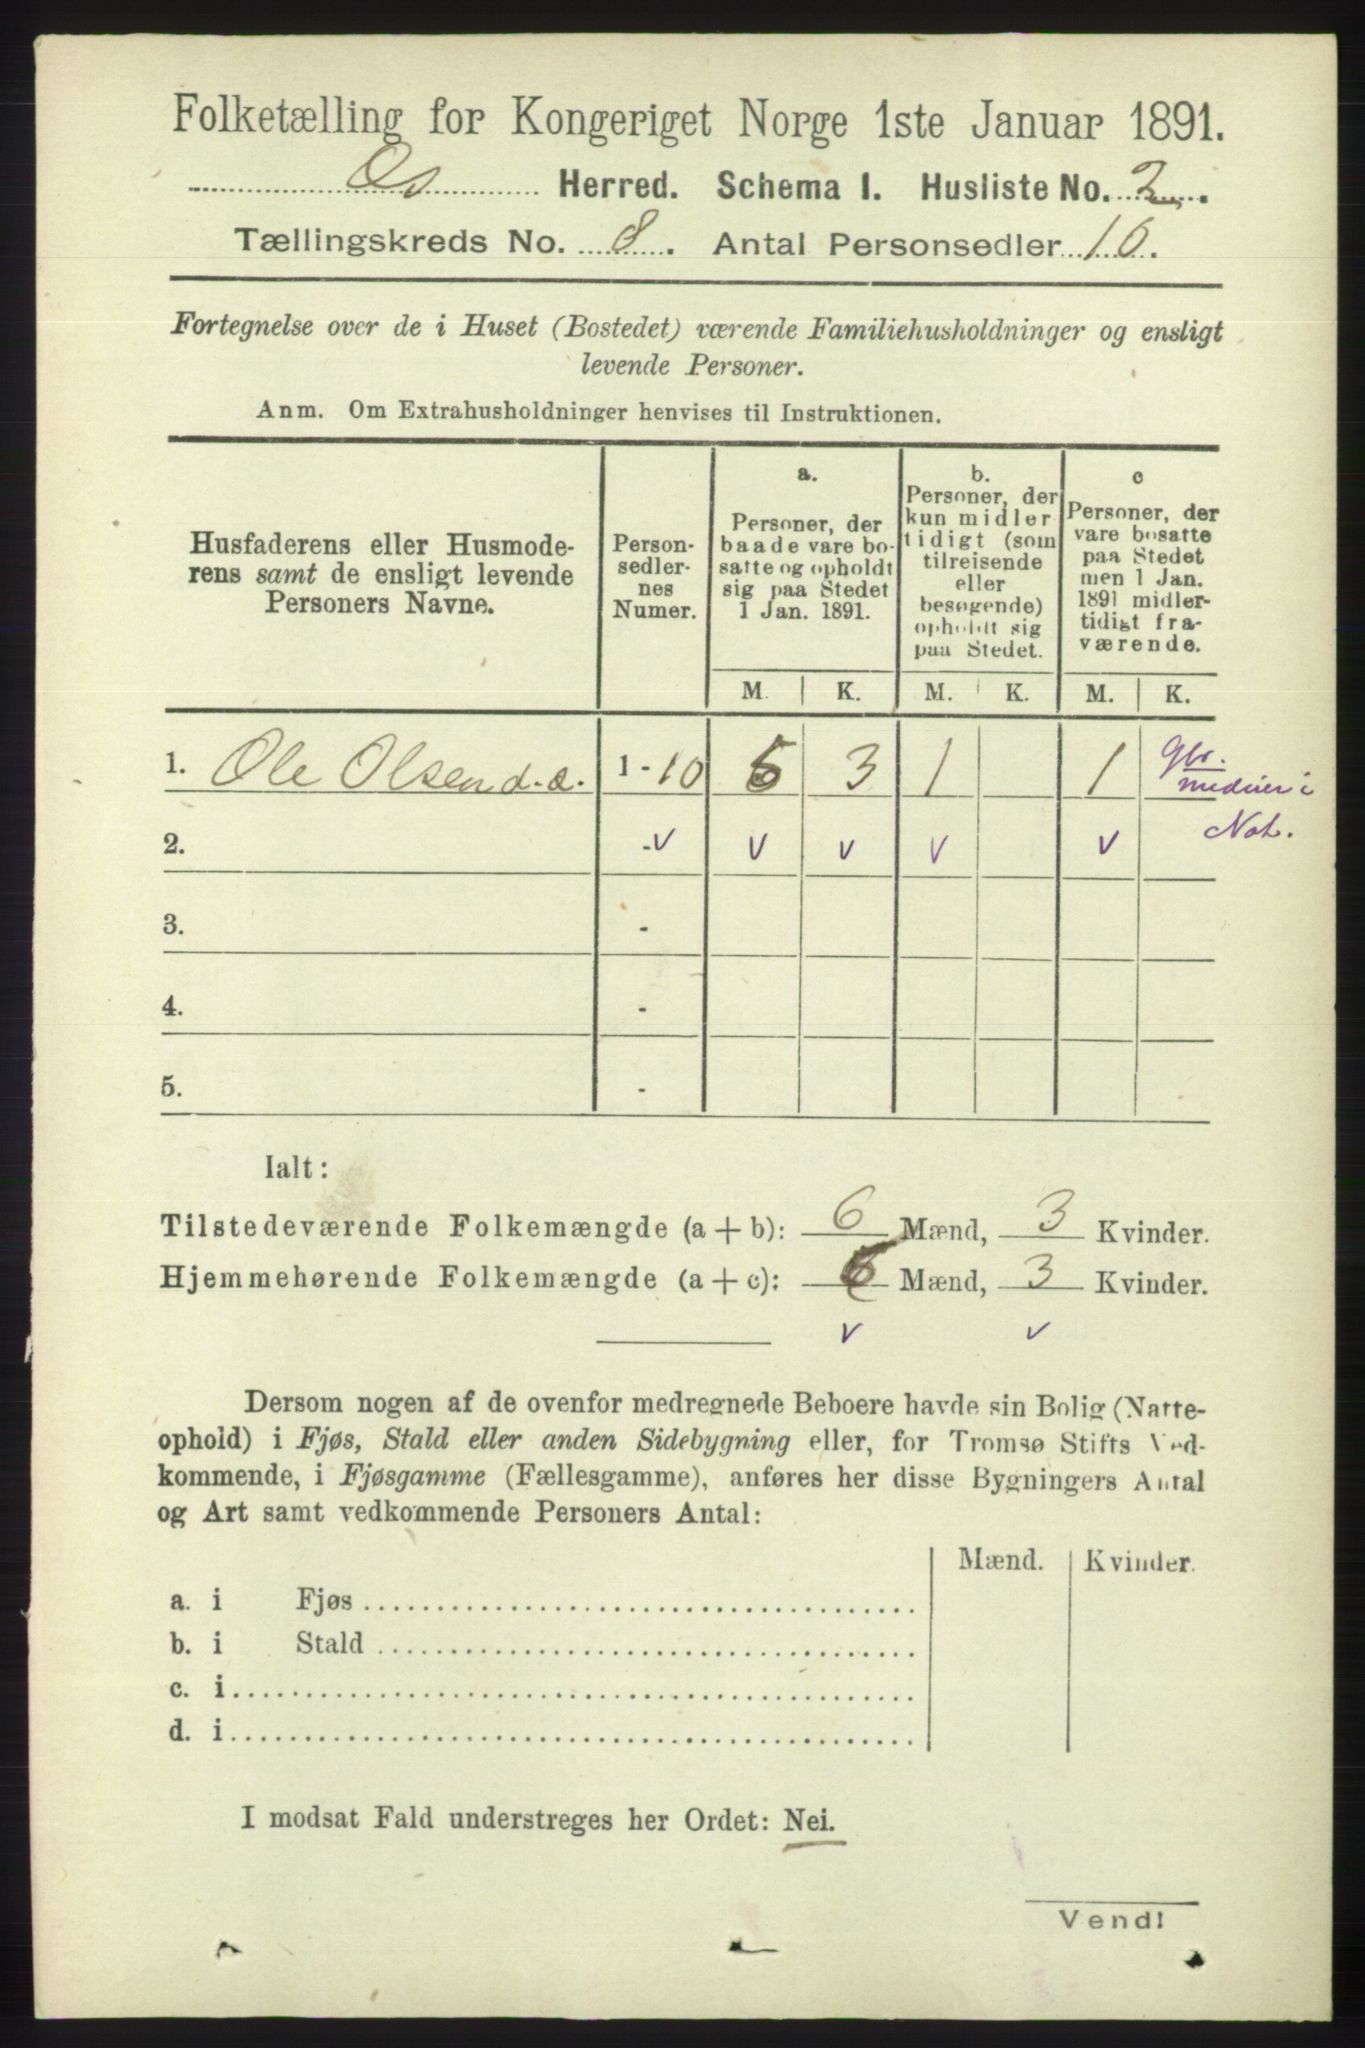 Folketælling for Kongeriget Norge 1ste Januar 1891.
Os Herred. Schema I. Husliste No. 2.
Tællingskreds No. 8. Antal Personsedler 10.
Fortegnelse over de i Huset (Bostedet) værende Familiehusholdninger og ensligt
levende Personer.
Anm. Om Extrahusholdninger henvises til Instruktionen.
Husfaderens eller Husmode-
rens samt de ensligt levende
Personers Navne.
Person-
sedler-
nes
Numer.
a.
Personer, der
baade vare bo-
satte og opholdt
sig paa Stedet
1 Jan. 1891.
b.
Personer, der
kun midler
tidigt (som
tilreisende
eller
besøgende)
opholdt sig
paa Stedet.
c
Personer, der
vare bosatte
paa Stedet
men 1 Jan.
1891 midler-
tidigt fra-
værende.
M. K. M. K. M. K.
1. Ole Olsen d.æ. 1 - 10 5 3 1 1
Not.
2. - v v v v v
3. -
4. -
5. -
Ialt:
Tilstedeværende Folkemængde (a + b): 6 Mænd, 3 Kvinder.
Hjemmehørende Folkemængde (a + c): 6 Mænd, 3 Kvinder.
v v
Dersom nogen af de ovenfor medregnede Beboere havde sin Bolig (Natte-
ophold) i Fjøs, Stald eller anden Sidebygning eller, for Tromsø Stifts Ved-
kommende, i Fjøsgamme (Fællesgamme), anføres her disse Bygningers Antal
og Art samt vedkommende Personers Antal:
Mænd. Kvinder.
a. i Fjøs
b. i Stald
c. i
d. i
I modsat Fald understreges her Ordet: Nei.
Vend!